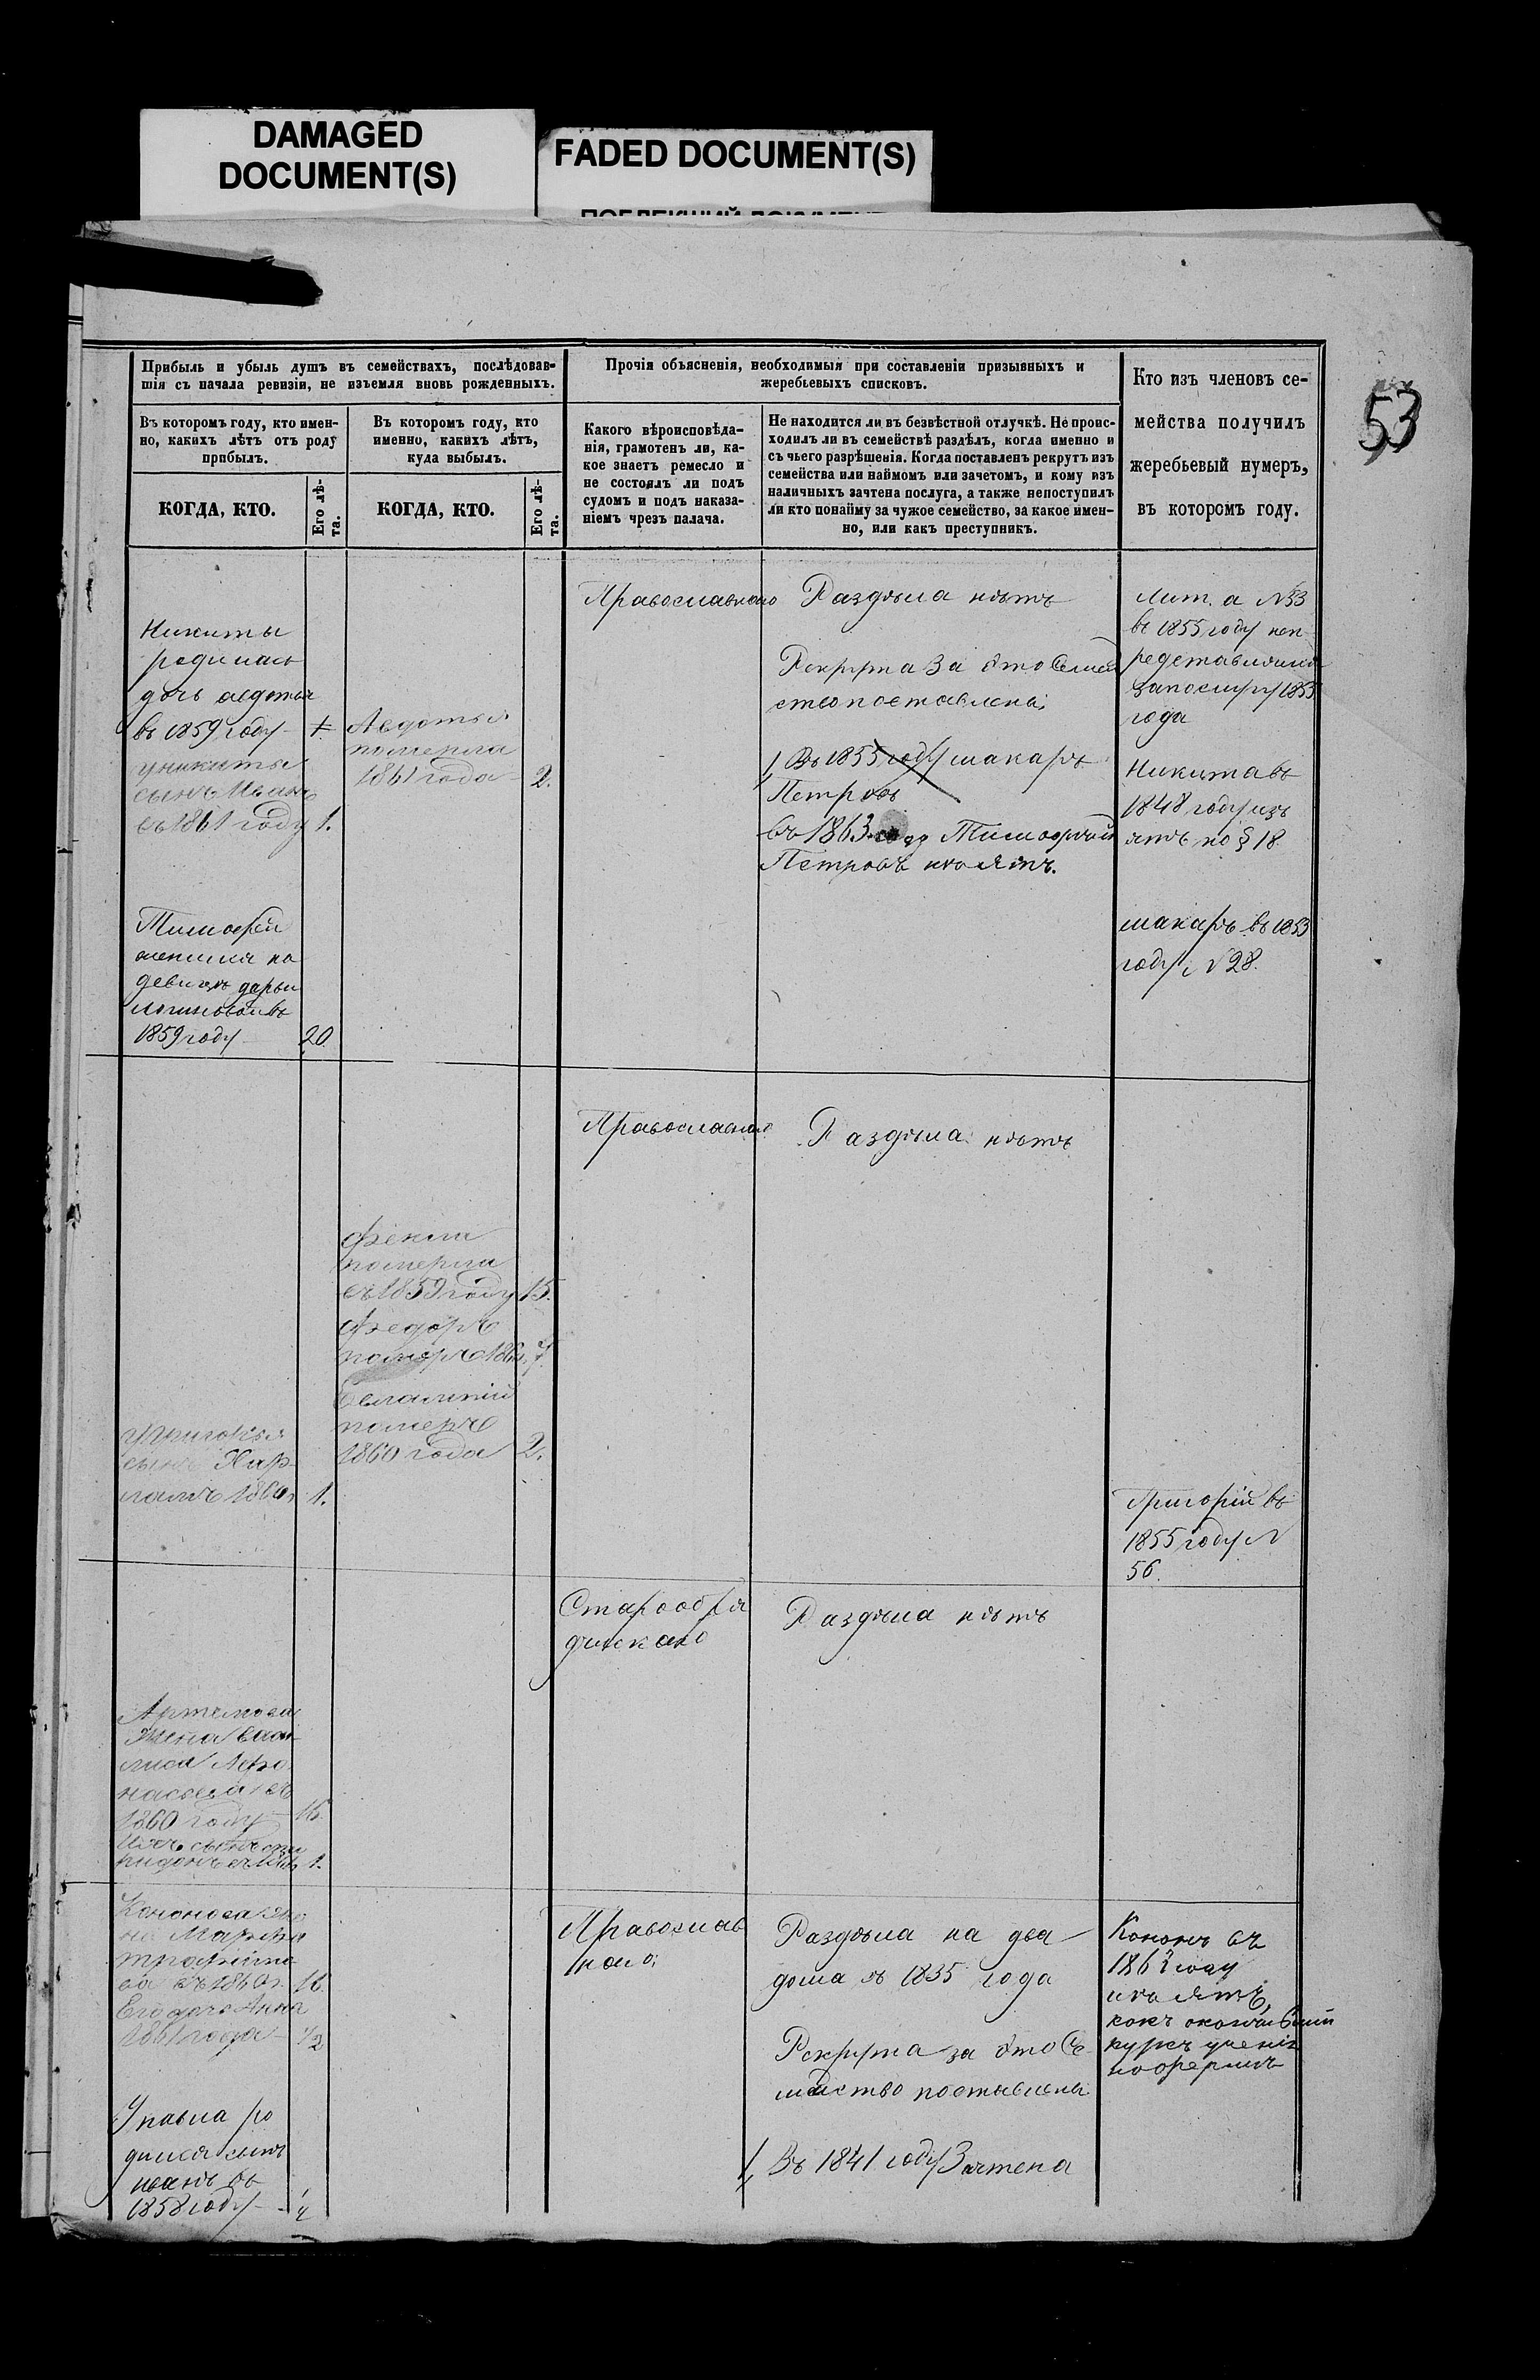 DAMAGED
DOCUMENT(S)
FADED DOCUMENT(S)
53
Прибыль и убыль душъ въ семействахъ, послѣдовав-
шія съ начала ревизіи, не изъемля вновь рожденныхъ.
Въ которомъ году, кто имен-
но, какихъ лѣтъ отъ роду
прибылъ.
КОГДА, КТО.
Его лѣ-
та.
Въ которомъ году, кто
именно, какихъ лѣтъ,
куда выбылъ.
КОГДА, КТО.
Его лѣ-
та.
Прочія объясненія, необходимыя при составленіи призывныхъ и
жеребьевыхъ списковъ.
Какого вѣроисповѣда-
нія, грамотенъ ли, ка-
кое знаетъ ремесло и
не состоялъ ли подъ
судомъ и подъ наказа-
ніемъ чрезъ палача.
Не находится ли въ безвѣстной отлучкѣ. Не проис-
ходилъ ли въ семействѣ раздѣлъ, когда именно и
съ чьего разрѣшенія. Когда поставленъ рекрутъ изъ
семейства или наймомъ или зачетомъ, и кому изъ
наличныхъ зачтена послуга, а также непоступилъ
ли кто понайму за чужое семейство, за какое имен-
но, или какъ преступникъ.
Кто изъ членовъ се-
мейства получилъ
жеребьевый нумеръ,
въ которомъ году.
Никиты
родилась
дочь авдотья
въ 1859 году
у никиты
сынъ Иванъ
въ 1861 году 1.
Тимофей
женился на
девицѣ дарьи
Логиновой въ
1859 году 20
Авдотья
померла
1861 года 2.
Православнаго
Раздѣла нѣтъ
Рекрута за это Семей
ство поставлены
1, Въ 1855 году макаръ
Петровъ
въ 1863 году Тимофей
Петровъ изъятъ.
Лит. а №33
въ 1855 году
1853
года
Никита въ
1848 году изъ
ятъ по § 18
макаръ въ 1853
году, №28.
Фекла
померла
въ 1859 году 15.
Федоръ
померъ 7.
Евлампій
померъ
1860 года 2.
у Григорья
сынъ Хар
лампъ 1860 1.
Православнаго
Раздѣла нѣтъ
Григорій въ
1855 году №
56.
Старообря
дческаго
Раздѣла нѣтъ
жена Васи
лиса Афо
насьева въ
1860 году 16.
сынъ спи
ридонъ 1.
Кононова же
на Марфа
16.
Его дочь Анна
1861 года 1/2
У павла ро
дился сынъ
иванъ въ
1858 году
Православ
наго
Раздѣла на два
дома съ 1835 года
Рекрута за это Се
мейство поставлены
1, Въ 1841 году Зачтена
Кононъ въ
году
изъятъ,
какъ окончившій
курсъ ученія
по фермѣ